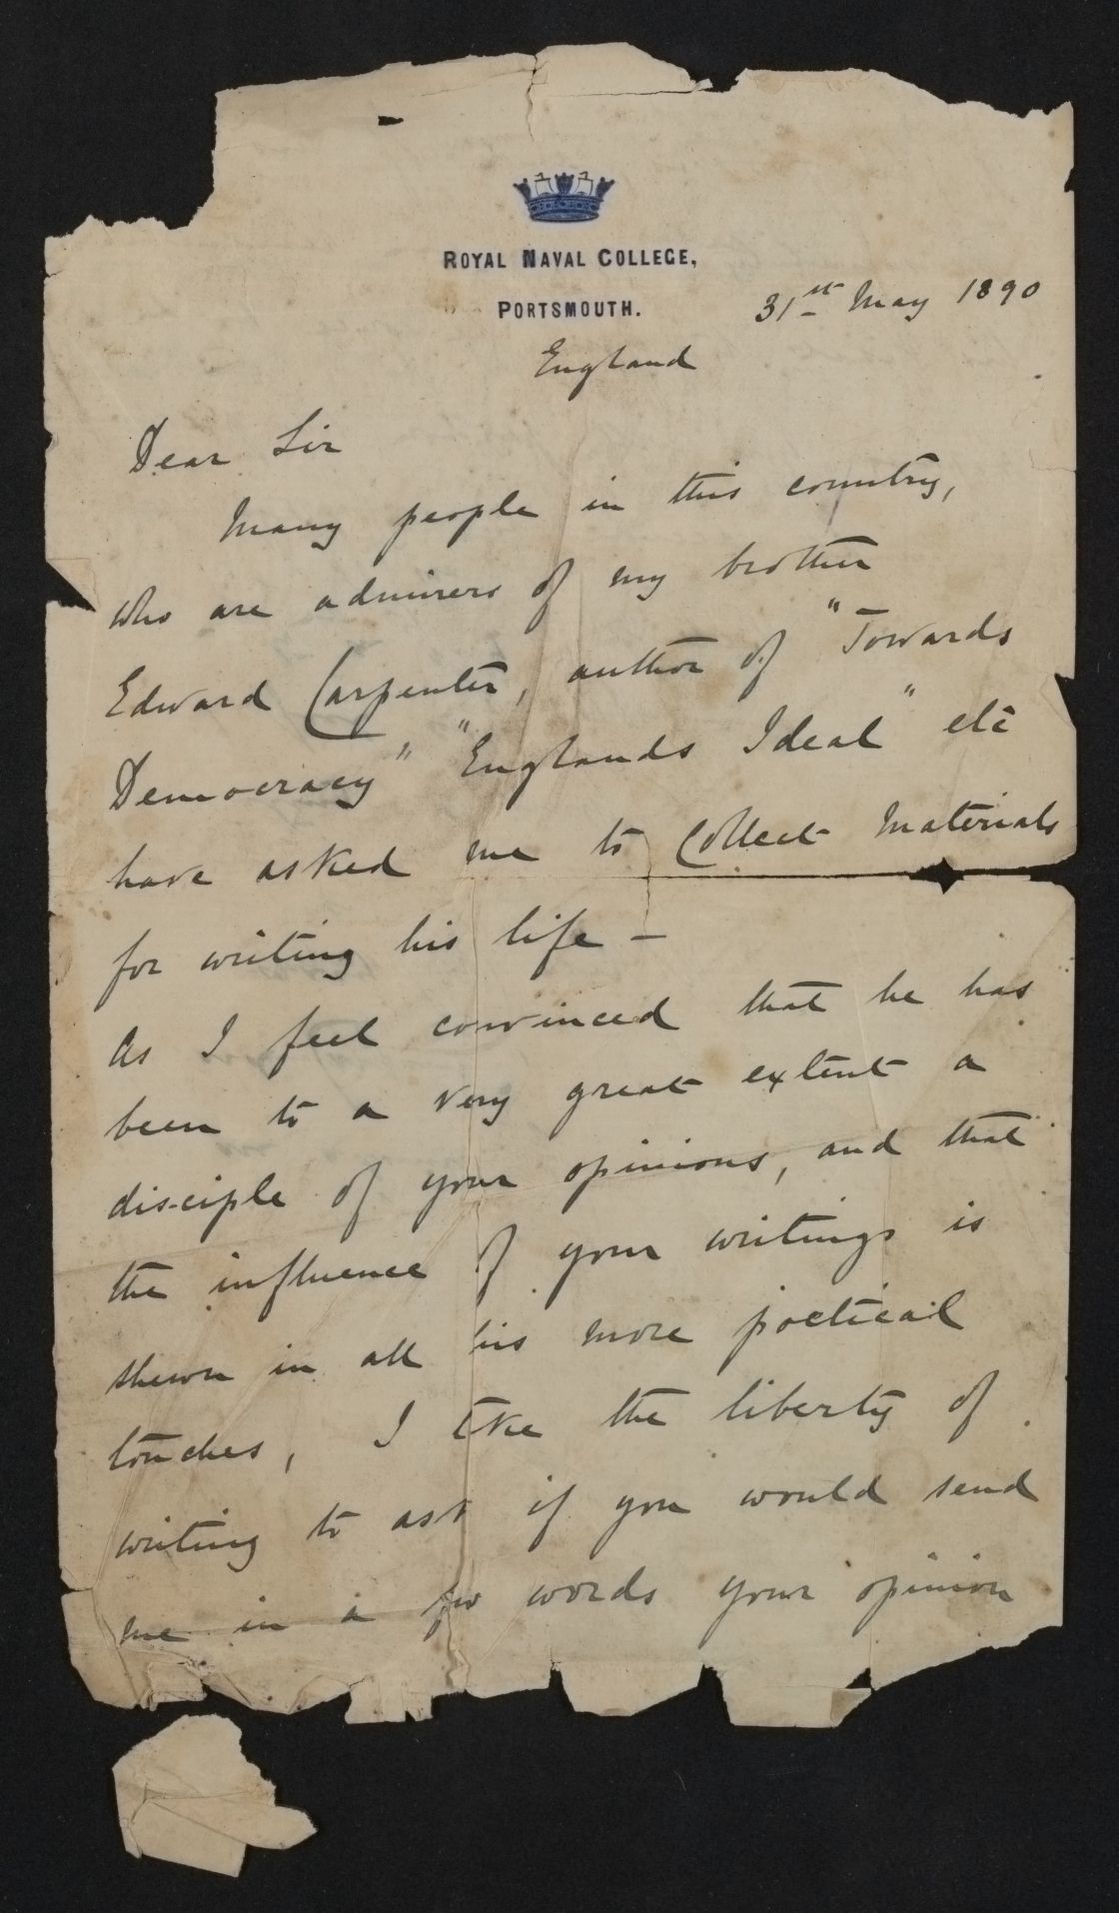 ROYAL NAVAL COLLEGE,
PORTSMOUTH.
31st May 1890
England
Dear Sir
Many people in this country,
who are admirers of my brother
Edward Carpenter, author of "Towards
Democracy" "Englands Ideal" etc
have asked me to collect materials
for writing his life —
As I feel convinced that he has
been to a very great extent a
disciple of your opinions, and that
the influence of your writings is
shewn in all his more poetical
touches, I take the liberty of
writing to ask if you would send
me in a few words your opinion